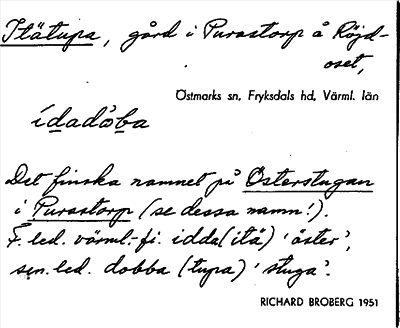 Itätupa, gård i Purastorp å Röjd-
oset,
Östmarks sn, Fryksdals hd, Värml. län
ídadòba
Det finska namnet på Österstugan
i Purastorp (se dessa namn!).
F. led. värml.-fi. idda (itä) 'öster',
sen. led. dobba (tupa) 'stuga'.
RICHARD BROBERG 1951